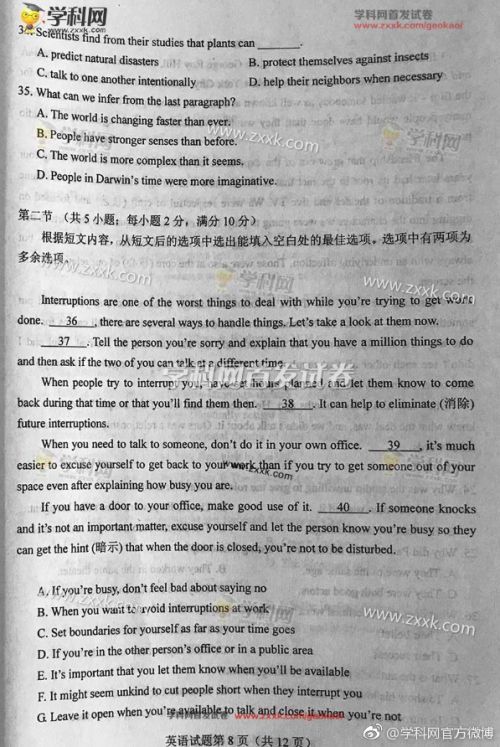 学科网 ZXXK.COM
学科网首发试卷
www.zxxk.com/gaokao/
34. Scientists find from their studies that plants can ______.
A. predict natural disasters B. protect themselves against insects
C. talk to one another intentionally D. help their neighbors when necessary
35. What can we infer from the last paragraph?
A. The world is changing faster than ever.
B. People have stronger senses than before.
C. The world is more complex than it seems.
D. People in Darwin's time were more imaginative.
第二节 （共5小题；每小题2分，满分10分）
根据短文内容，从短文后的选项中选出能填入空白处的最佳选项。选项中有两项为
多余选项。
Interruptions are one of the worst things to deal with while you're trying to get work
done. 36 , there are several ways to handle things. Let's take a look at them now.
37 . Tell the person you're sorry and explain that you have a million things to do
and then ask if the two of you can talk at a different time.
When people try to interrupt you, have set hours planned and let them know to come
back during that time or that you'll find them then. 38 . It can help to eliminate (消除)
future interruptions.
When you need to talk to someone, don't do it in your own office. 39 , it's much
easier to excuse yourself to get back to your work than if you try to get someone out of your
space even after explaining how busy you are.
If you have a door to your office, make good use of it. 40 . If someone knocks
and it's not an important matter, excuse yourself and let the person know you're busy so they
can get the hint (暗示) that when the door is closed, you're not to be disturbed.
A. If you're busy, don't feel bad about saying no
B. When you want to avoid interruptions at work
C. Set boundaries for yourself as far as your time goes
D. If you're in the other person's office or in a public area
E. It's important that you let them know when you'll be available
F. It might seem unkind to cut people short when they interrupt you
G. Leave it open when you're available to talk and close it when you're not
学科网首发试卷 www.zxxk.com/gaokao/
英语试题第 8 页（共 12 页）
@学科网官方微博